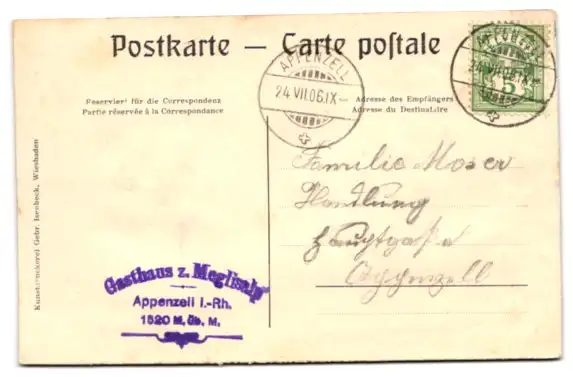 Postkarte — Carte postale
APPENZELL
24.VII.06.IX—
APPENZELL
24.VII.06.IX
5
Reserviert für die Correspondenz
Partie réservée à la Correspondance
Adresse des Empfängers
Adresse du Destinataire
Familie Moser
Handlung
Hauptgasse
Appenzell
Kunstdruckerei Gebr. Isenbeck, Wiesbaden
Gasthaus z. Meglisalp
Appenzell I.-Rh.
1520 M. üb. M.